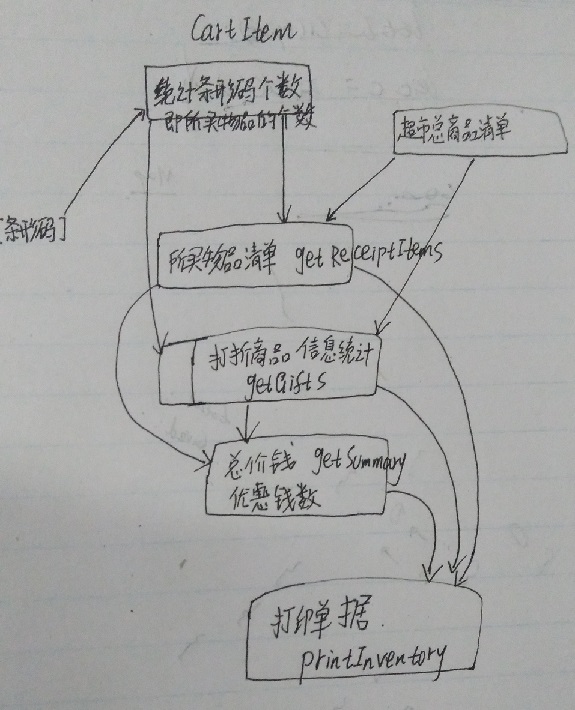 CartItem
统计条形码个数
即所买物品的个数
超市总商品清单
[条形码]
所买物品清单 getReceiptItems
打折商品信息统计
getGifts
总价钱 getSummary
优惠钱数
打印单据
printInventory